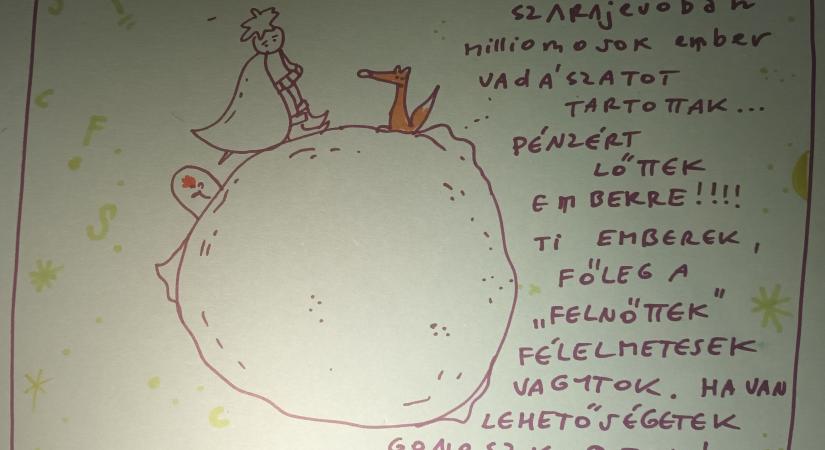 SZARAJevobAn
milliomosok ember
VAdÁSZATOT
TARTOTTAK...
PÉNZÉRT
LŐTTEK
EMBEKRE!!!!
Ti EMBEREK,
FŐLEG A
„FELNŐTTEK"
FÉLELMETESEK
VAGYTOK. HA VAN
LEHETŐSÉGETEK